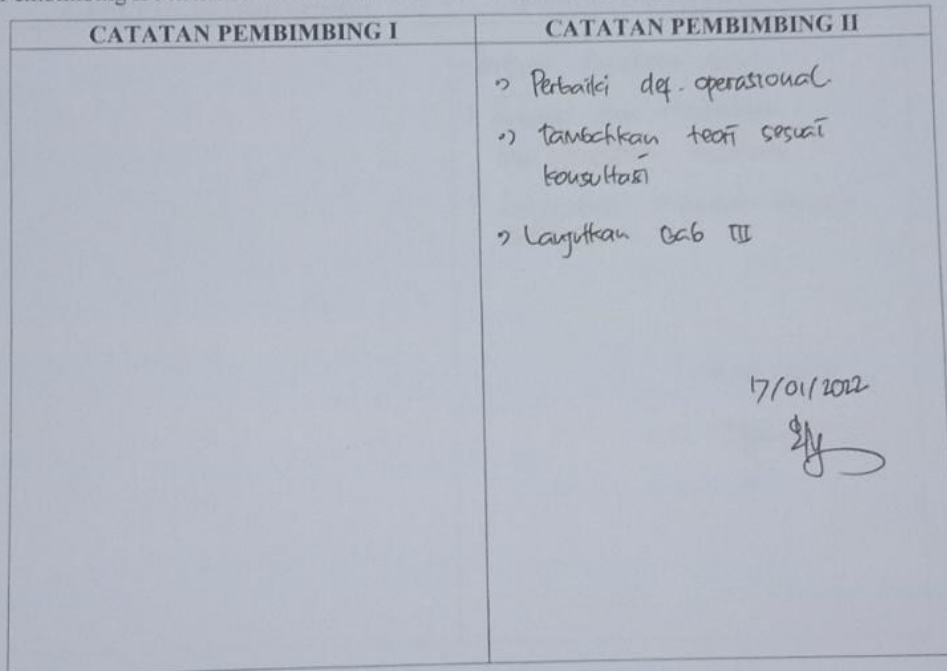 CATATAN PEMBIMBING I
CATATAN PEMBIMBING II
Perbaiki def. operasional.
tambahkan teori sesuai
konsultasi
Lanjutkan Bab III
17/01/2022